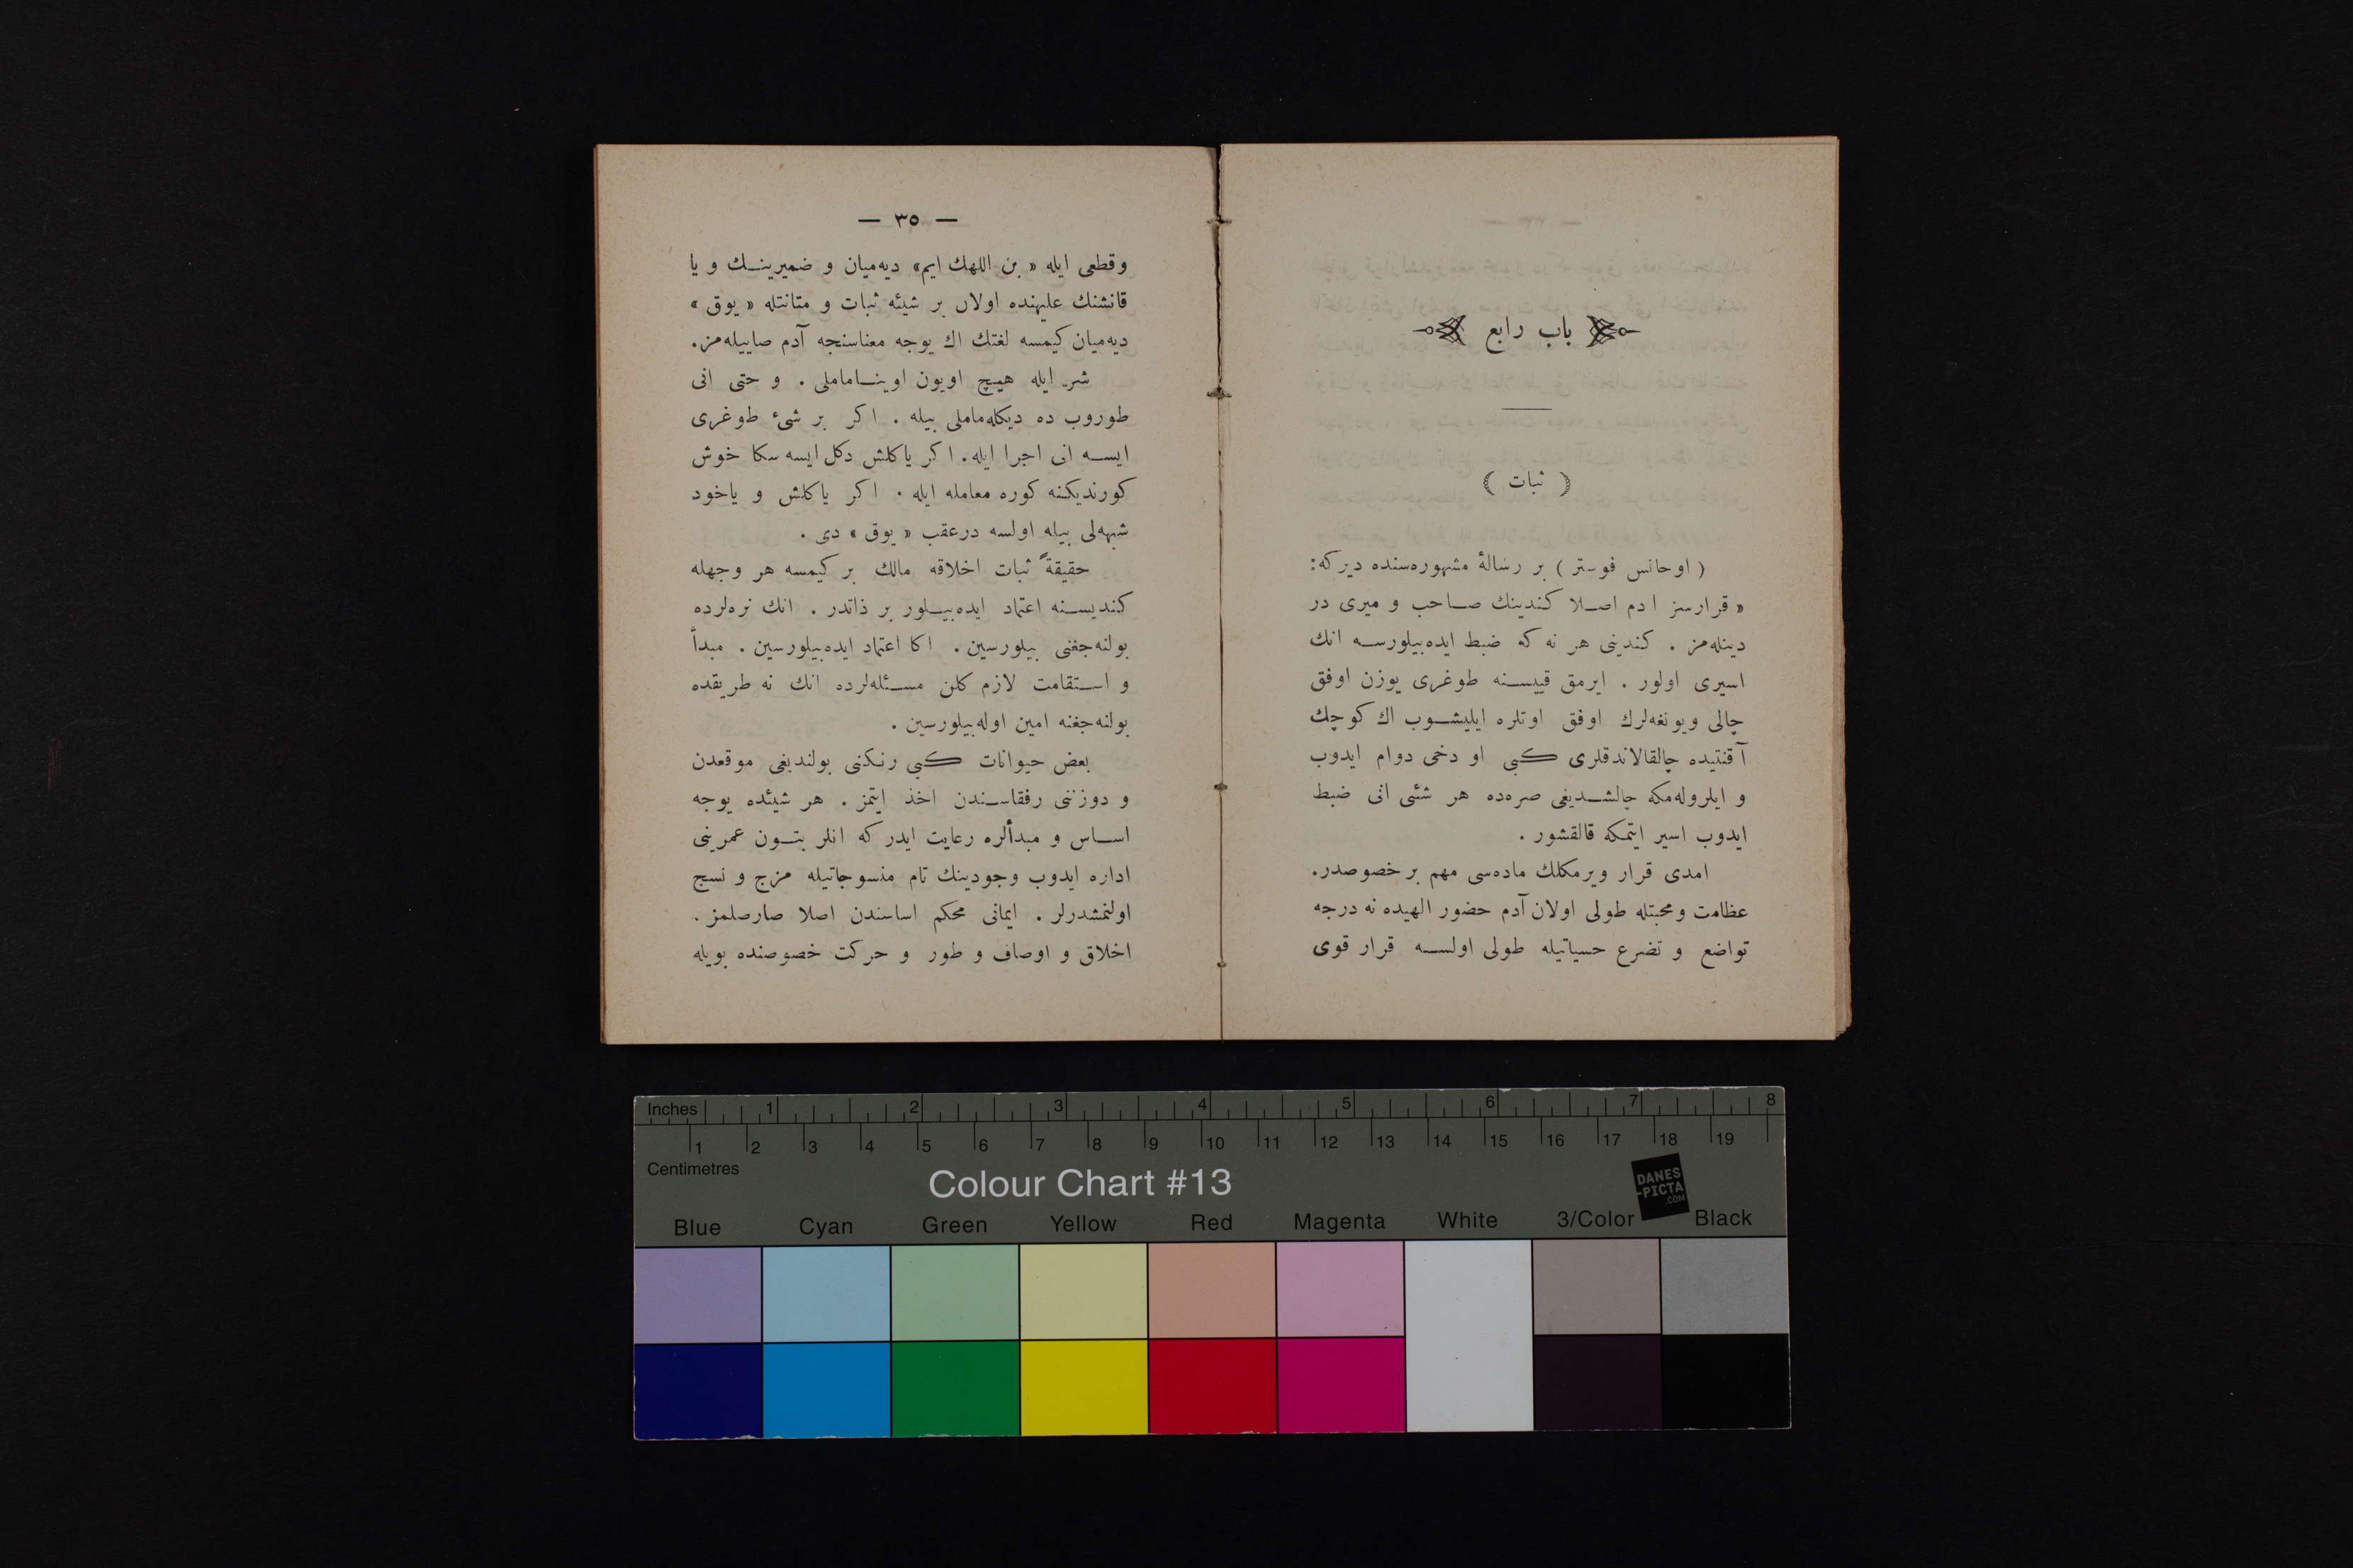 باب رابع
( ثبات )
( اوحانس فوستر ) بر رسالۀ مشهوره‌سنده ديركه:
« قرارسز ادم اصلا كندينك صاحب و ميری در
دينله‌مز . كندينی هر نه كه ضبط ايده‌بيلورسه انك
اسيری اولور . ايرمق قييسنه طوغری يوزن اوفق
چالی ويونغه‌لرك اوفق اوتلره ايليشوب اك كوچك
آقنتيده چالقالاندقلری كبی او دخی دوام ايدوب
و ايلروله‌مكه چالشديغی صره‌ده هر شئی انی ضبط
ايدوب اسير ايتمكه قالقشور .
امدی قرار ويرمكلك ماده‌سی مهم بر خصوصدر.
عظامت ومحبتله طولی اولان آدم حضور الهيده نه درجه
تواضع و تضرع حسياتيله طولی اولسه قرار قوی
— ٣٥ —
وقطعی ايله « بن اللهك ايم» ديه‌ميان و ضميرينك و يا
قانشنك عليهنده اولان بر شيئه ثبات و متانتله « يوق »
ديه‌ميان كيمسه لغتك اك يوجه معناسنجه آدم صاييله‌مز.
شر ايله هيچ اويون اويناماملی . و حتی انی
طوروب ده ديكله‌ماملی بيله . اكر بر شئ طوغری
ايسه انی اجرا ايله. اكر ياكلش دكل ايسه سكا خوش
كورنديكنه كوره معامله ايله . اكر ياكلش و ياخود
شبهه‌لی بيله اولسه درعقب « يوق » دی .
حقيقةً ثبات اخلاقه مالك بر كيمسه هر وجهله
كنديسنه اعتماد ايده‌بيلور بر ذاتدر . انك نره‌لرده
بولنه‌جغنی بيلورسين . اكا اعتماد ايده‌بيلورسين . مبدأ
و استقامت لازم كلن مسئله‌لرده انك نه طريقده
بولنه‌جغنه امين اوله‌بيلورسين .
بعض حيوانات كبی رنكنی بولنديغی موقعدن
و دوزننی رفقاسندن اخذ ايتمز . هر شيئده يوجه
اساس و مبدألره رعايت ايدر كه انلر بتون عمرينی
اداره ايدوب وجودينك تام منسوجاتيله مزج و نسج
اولنمشدرلر . ايمانی محكم اساسندن اصلا صارصلمز .
اخلاق و اوصاف و طور و حركت خصوصنده بويله
Inches 1 2 3 4 5 6 7 8
1 2 3 4 5 6 7 8 9 10 11 12 13 14 15 16 17 18 19
Centimetres
Colour Chart #13
DANES
-PICTA
.COM
Blue Cyan Green Yellow Red Magenta White 3/Color Black